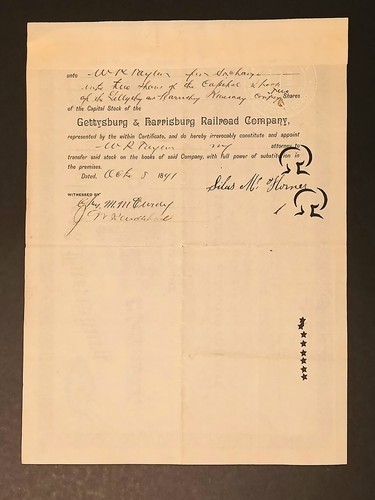 unto W R Taylor for Exchange
into Five Shares of the Capital Stock
of the Gettysburg & Harrisburg Railway Company Five Shares
of the Capital Stock of the
Gettysburg & Harrisburg Railroad Company,
represented by the within Certificate, and do hereby irrevocably constitute and appoint
W R Taylor my attorney to
transfer said stock on the books of said Company, with full power of substitution in
the premises.
Dated, Oct 3 1891
Silas Mc Horner
WITNESSED BY
M. McCurdy